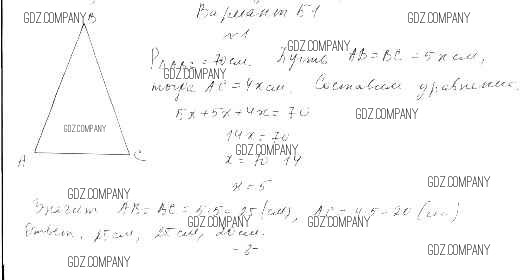 Вариант Б1
№1
B
P△ABC = 70 см. Пусть AB = BC = 5x см,
тогда AC = 4x см. Составим уравнение.
5x + 5x + 4x = 70
14x = 70
x = 70 : 14
x = 5
A
C
Значит AB = BC = 5·5 = 25 (см), AC = 4·5 = 20 (см)
Ответ. 25 см, 25 см, 20 см.
GDZ.COMPANY
GDZ.COMPANY
GDZ.COMPANY
GDZ.COMPANY
GDZ.COMPANY
GDZ.COMPANY
GDZ.COMPANY
GDZ.COMPANY
GDZ.COMPANY
GDZ.COMPANY
GDZ.COMPANY
GDZ.COMPANY
GDZ.COMPANY